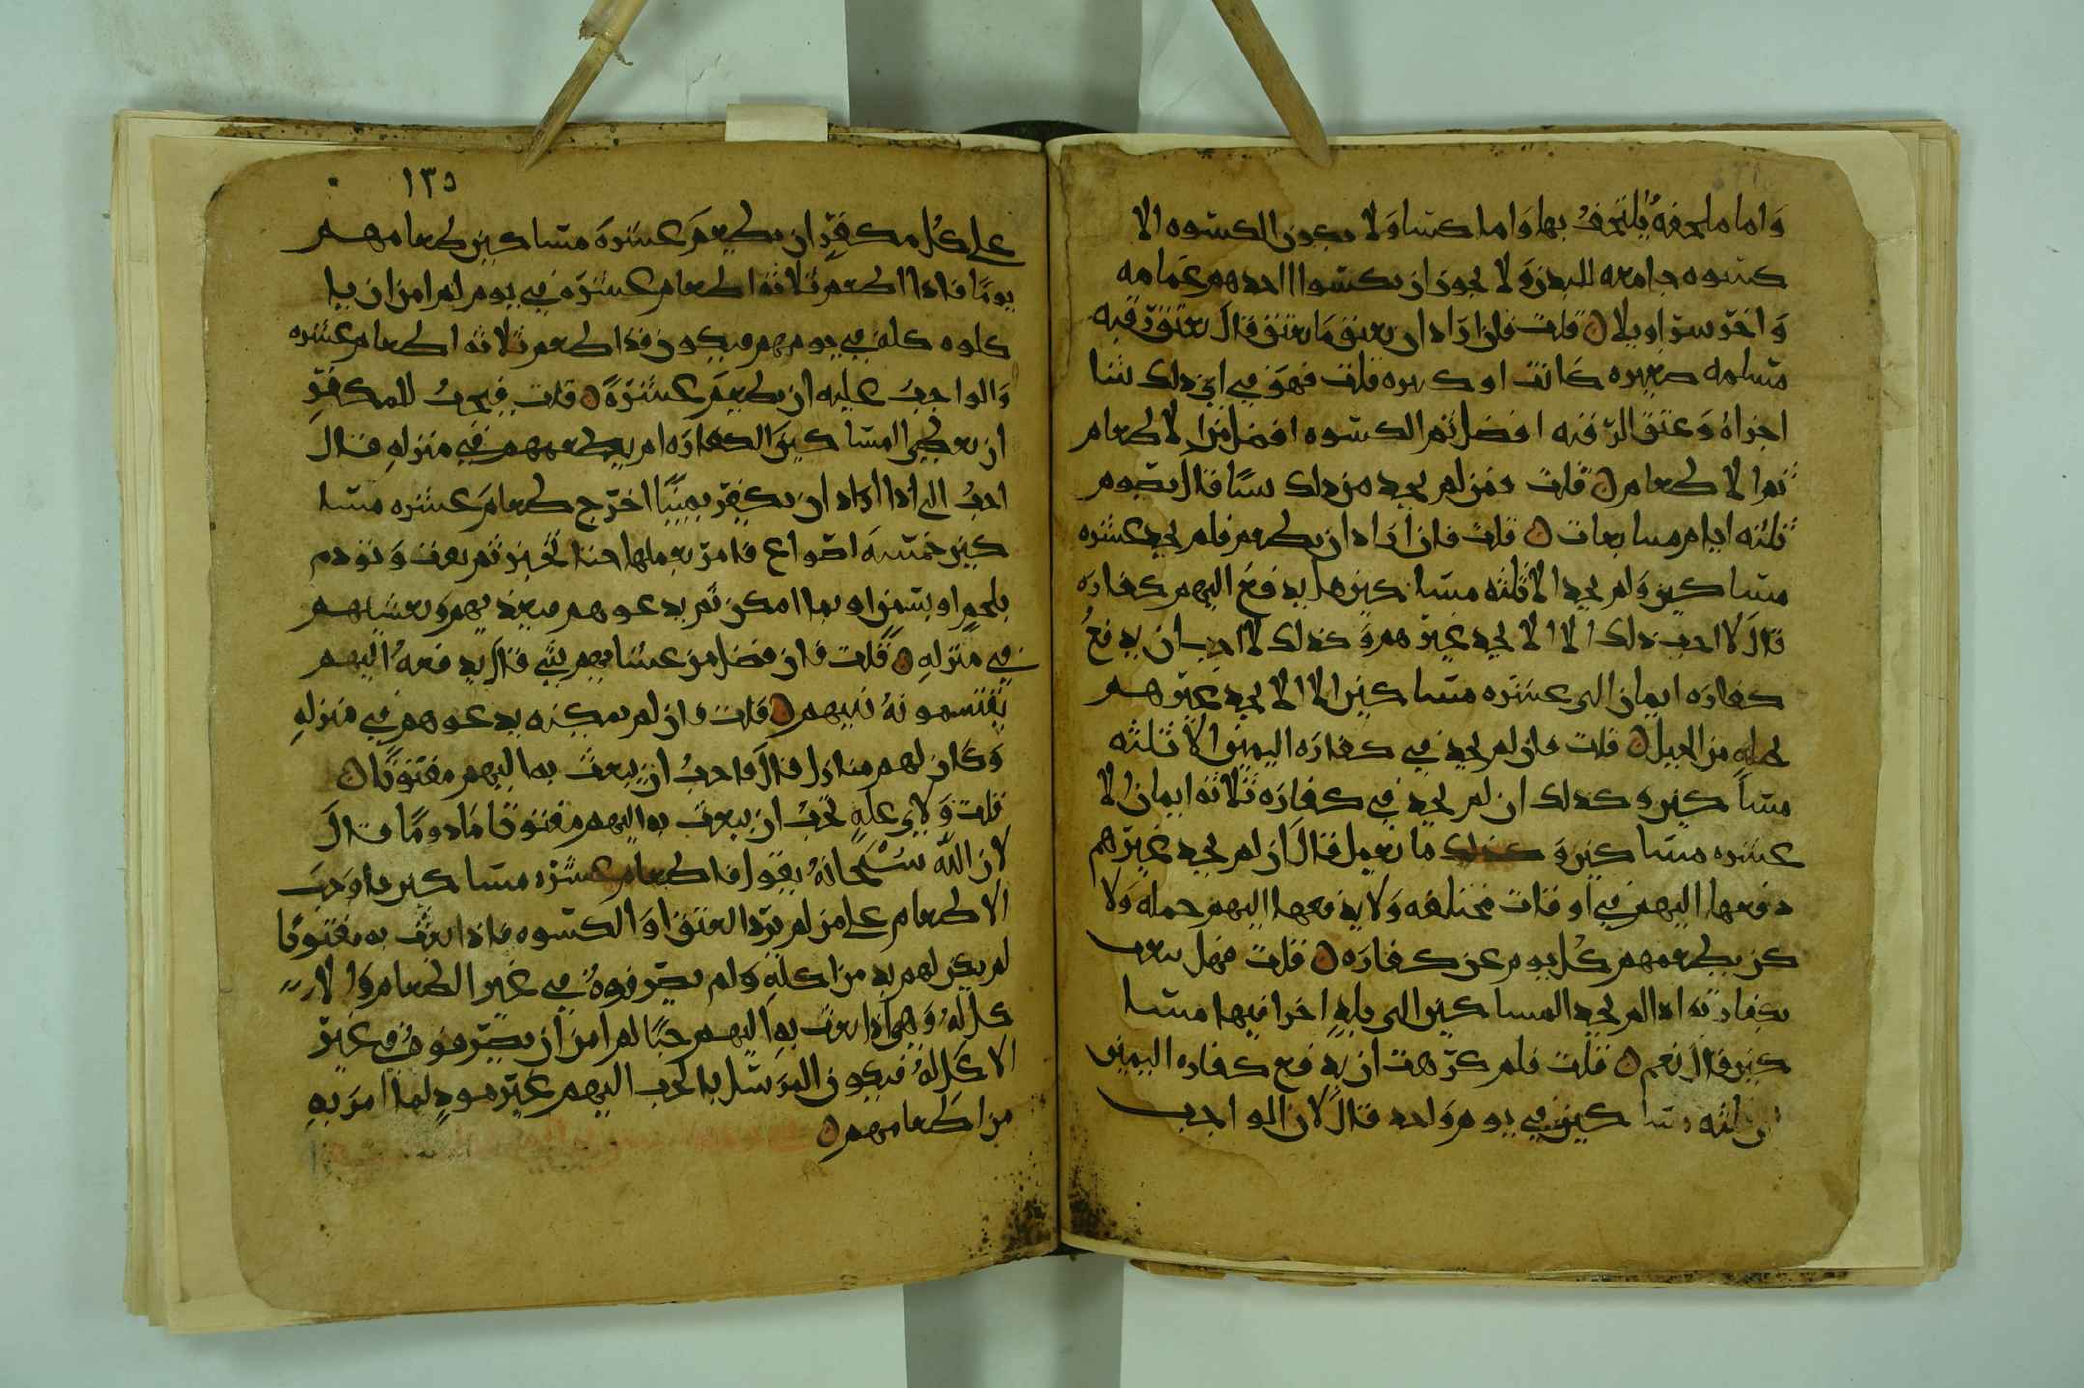 واما ملحفهً يلتحفُ بها واما كسا ولا يكون الكسوه الا
كسوه جامعه للبدن ولا يجوز ان يكسوا احدهم عمامه
واخر سراويلا قلت فان اراد ان يعتق ما يعتق قال يعتق رقبه
مسلمه صغيره كانت او كبيره قلت فهو في اي ذلك شا
اجزاهُ وعتق الرقبه افضل ثم الكسوه افضل من الاطعام
ثم الاطعام قلت فمن لم يجد من ذلك شيا قال يصوم
ثلثه ايام متتابعات قلت فان اراد ان يطعم فلم يجد عشره
مساكين ولم يجد الا ثلثه مساكين هل يدفع اليهم كفاره
قال لا احب ذلك الا ان لا يجد غيرهم وكذلك لا احب ان يدفعُ
كفاره ايمان الى عشره مساكين الا ان لا يجد غيرهم
بحيله من الحيل قلت فان لم يجد في كفاره اليمين الا ثلثه
مساكين وكذلك ان لم يجد في كفاره ثلاثه ايمان الا
عشره مساكين و كذلك ما يعمل قال ان لم يجد غيرهم
دفعها اليهم في اوقات مختلفه ولا يدفعها اليهم جمله ولا
كن يطعمهم كل يوم عن كفاره قلت فهل يبعث
بكفارته اذا لم يجد المساكين الى بلدٍ اخر فيها مسا
كين قال نعم قلت فلم كرهت ان يدفع كفاره اليمين
الى ثلثه مساكين في يوم واحد قال لان الواجب
١٣٥
على كل مكفرٍ ان يطعم عشرة مساكين طعامهم
يومًا فاذا اطعم ثلاثه اطعام عشره في يوم لم امن ان يا
كلوه كله في يومهم فيكون قد اطعم ثلاثه اطعام عشره
والواجبُ عليه ان يطعم عشرةً قلت فيجبُ للمكفرِ
ان يعطي المساكين الكفاره ام يطعمهم في منزلهِ قال
احبُ الي اذا اراد ان يكفر يمينًا اخرج طعام عشره مسا
كين خمسه اصواع فامر بعملها حنا لخبز ثم يعت وتودم
بلحمٍ او بسمنٍ او بما امكن ثم يدعوهم فيغذيهم ويعشيهم
في منزلهِ قلت فان فضل من عشايهم شي قال يدفعهُ اليهم
يقتسمونهُ بينهم قلت فان لم يمكنه يدعوهم في منزلهِ
وكان لهم منازل قال فاحبُ ان يبعث به اليهم مفتوتًا
قلت ولاي علهٍ تحبُ ان يبعث به اليهم مفتوتًا مادومًا قال
لان الله سُبْحانهُ يقول فاطعام عشره مساكين فاوجب
الاطعام على من لم يرد العتق او الكسوه فاذا بعث به مفتوتًا
لم يكن لهم بد من اكلهِ ولم يصرفوهُ في غير الطعام والا
كل لهُ وهي اذا بعث بهِ اليهم حبًا لم امن ان يصرفوهُ في غير
الاكل لهُ فيكون المرسل بالحب اليهم غير مودٍ لما امر بهِ
من اطعامهم